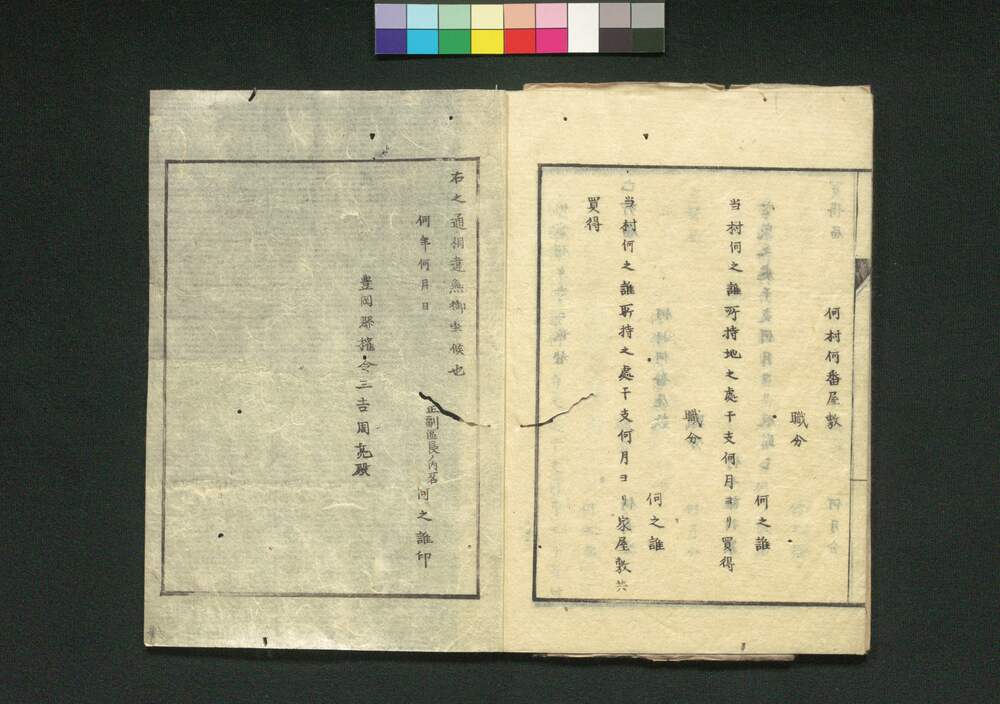 何村何番屋敷
職分
何之誰
当村何之誰所持地之處干支何月ヨリ買得
職分
何之誰
当村何之誰所持之處干支何月ヨリ家屋敷共
買得
右之通相違無御坐候也
何年何月日
正副區長ノ内名
何之誰印
豊岡縣権令三吉周亮殿